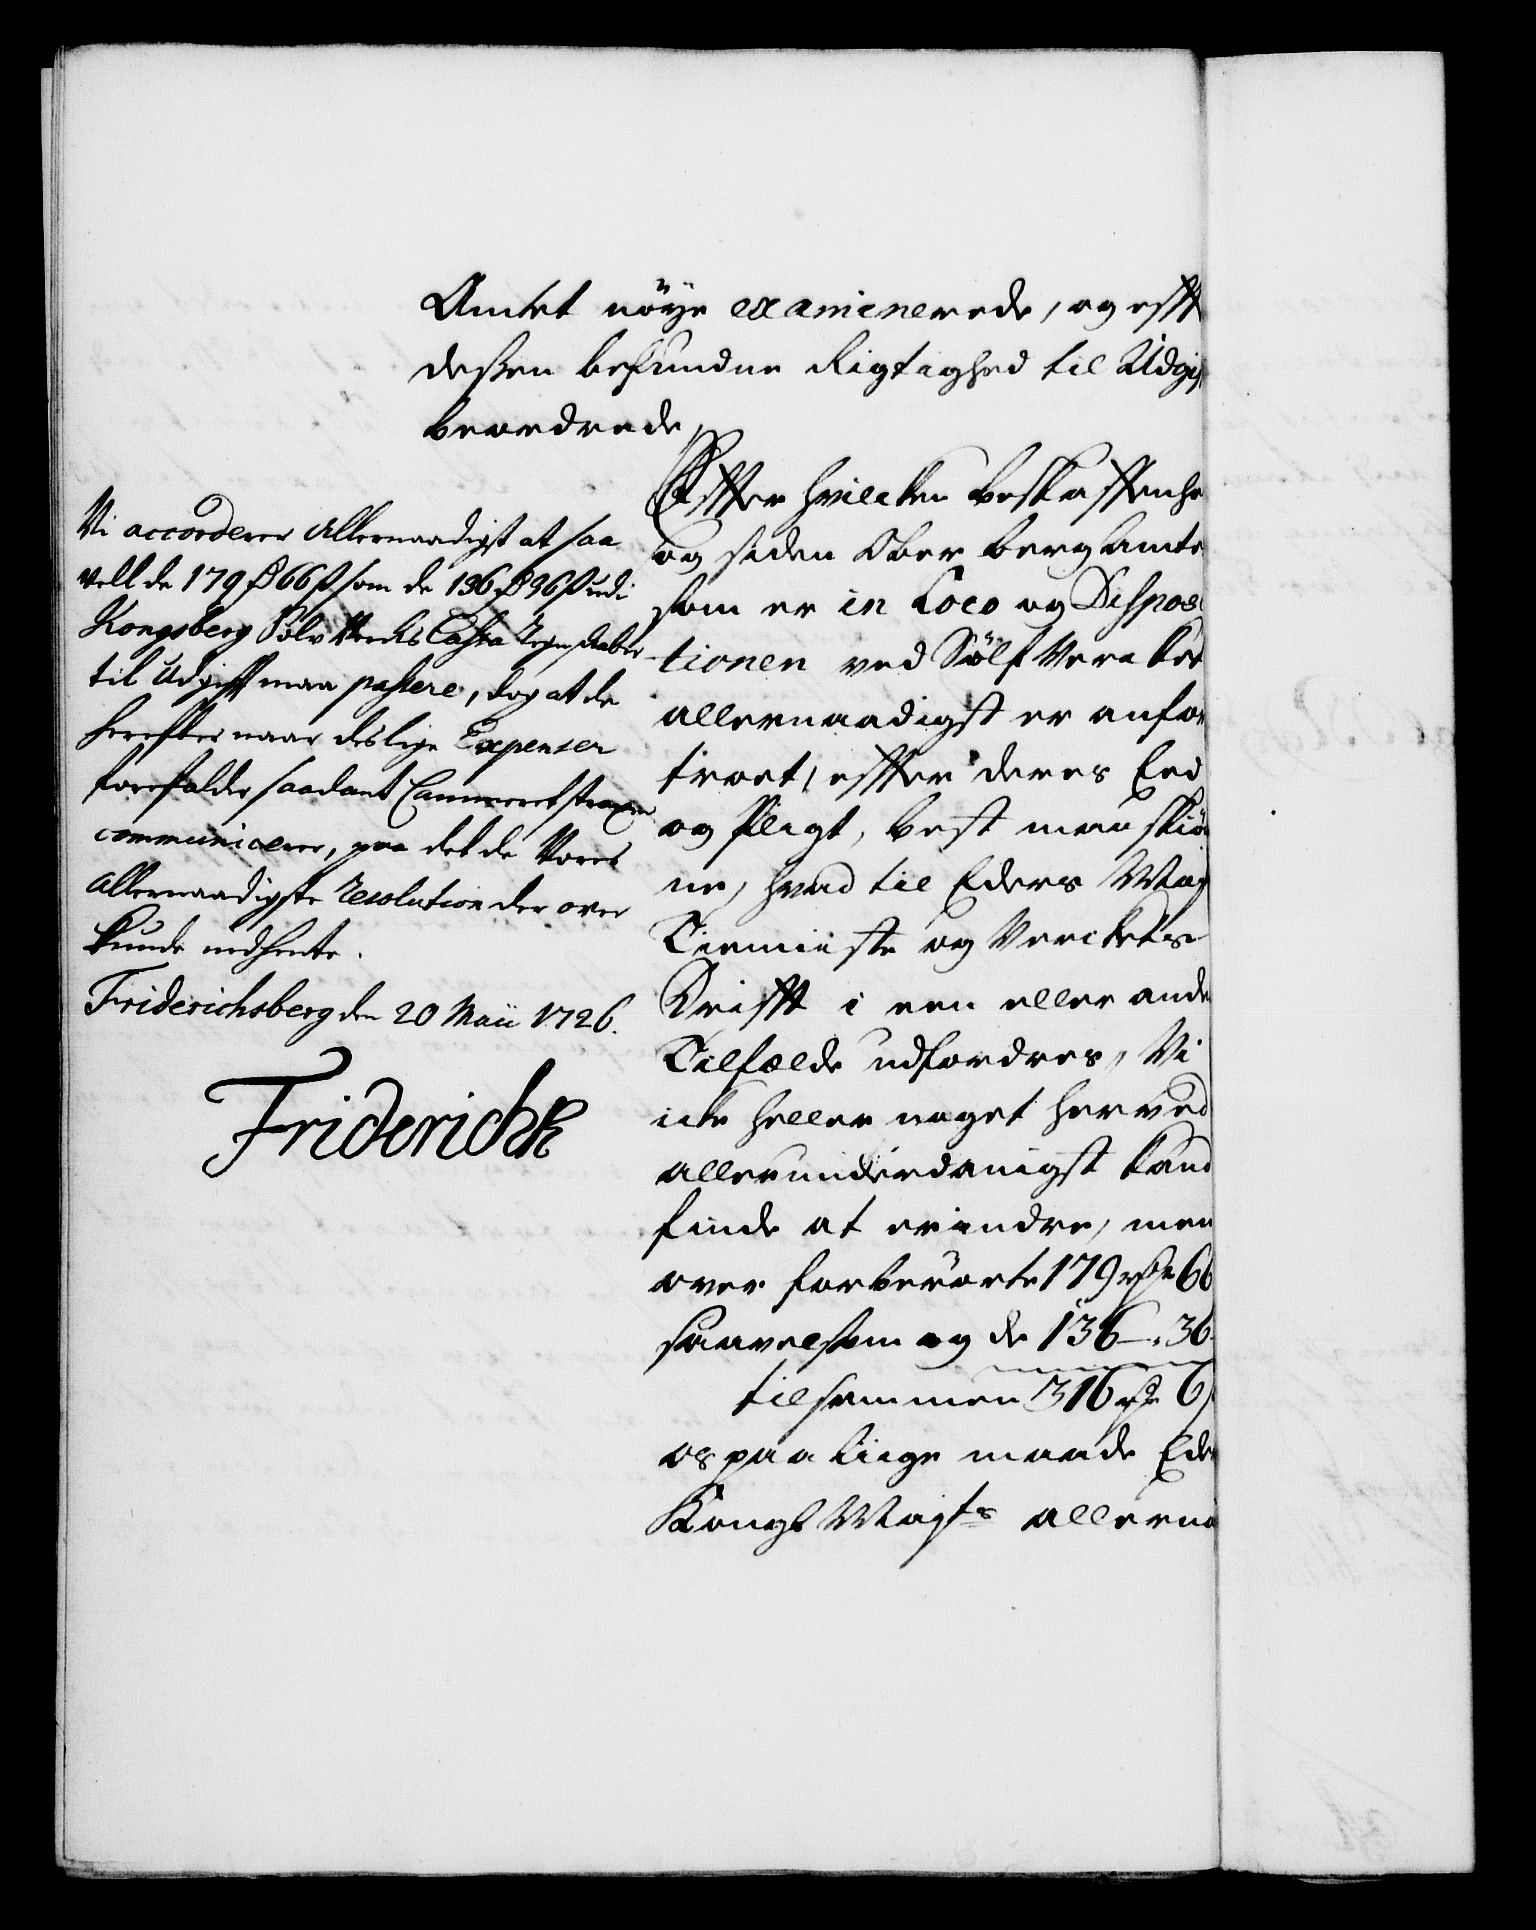 Amtet nöye examinerede, og efft
deßen befundne Rigtighed til Udgif
beordrede,
Effter hvilcken beskaffenhe
og siden Ober berg Amte
som er in Loco og Dispos
tionen ved Sölf Vercket
allernaadigst er anfor
troet, effter deres Eed
og Pligt, best maa skiö
ne, hvad til Eders May
Tienniste og Verckets
Drifft i een eller ande
Tilfælde udfordres, Vi
icke heller noget herved
allerunderdanigst kand
finde at erindre, men
over forberörte 179 rdr 66
saavelsom og de 136 - 36
tilsammen 316 rdr 6
os paa liige maade Ede
Kongl Mayts allerna
Vi accorderer Allernaadigst at saa
vell de 179 rd 66 ß som de 136 rd 36 ß udi
Kongsberg Sölv Vercks Cassa Regnskaber
til Udgifft maa passere, dog at de
herefter naar deslige Expenser
forefalder saadant Cammeret strax
communicerer, paa det de Vores
allernaadigste Resolution der over
kunde indhente.
Friderichsberg den 20 Maii 1726.
Friderich R